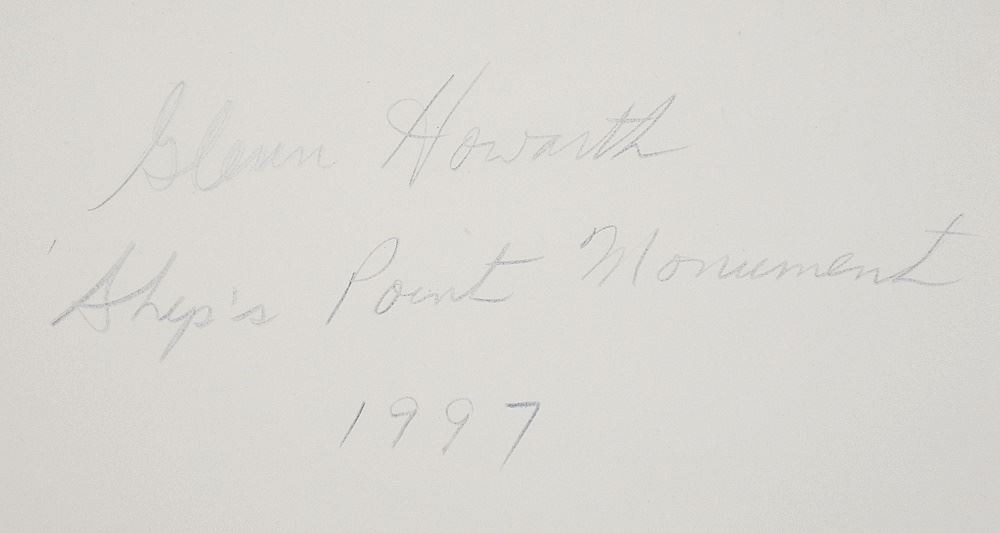 Glenn Howarth
'Ship's Point Monument
1997